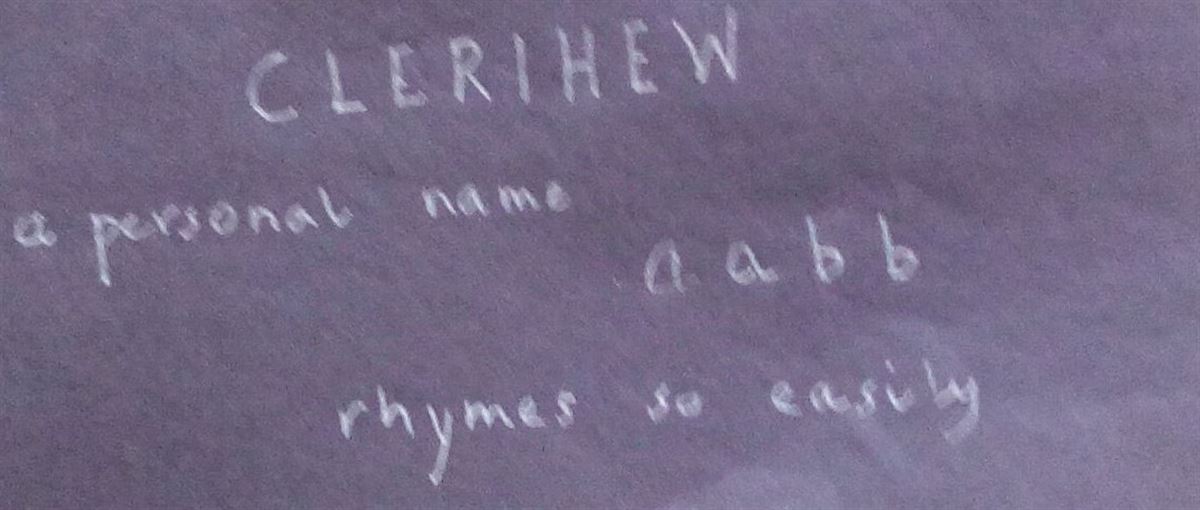 CLERIHEW
a personal name
aabb
rhymes so easily